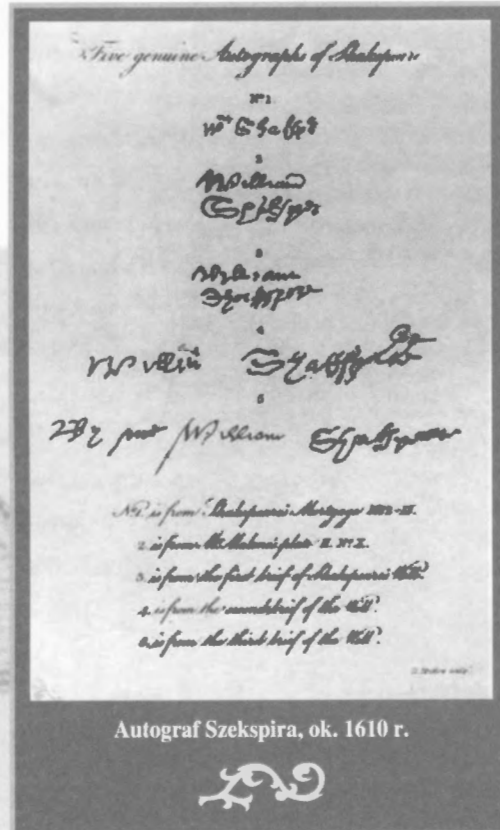 Five genuine Autographs of Shakspeare
Nº 1
Wm Shakspe
2
William
Shakspe
3
William
Shakspere
4
Willm Shakspere
5
By me William Shakspeare
Nº 1. is from Shakspeare's Mortgage 1612-13.
2. is from Mr. Malone's plate II. Nº X.
3. is from the first brief of Shakspeare's Will.
4. is from the second brief of the Will.
5. is from the third brief of the Will.
Autograf Szekspira, ok. 1610 r.